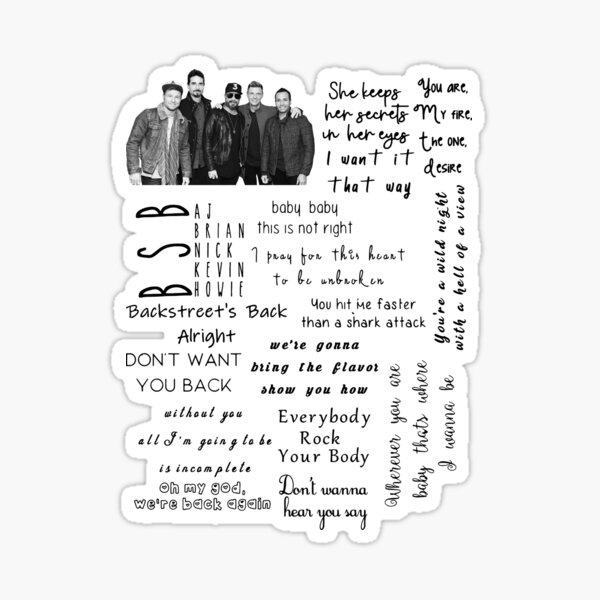 She keeps
her secrets
in her eyes
I want it
that way
You are,
My fire,
the one,
desire
BSB
AJ
BRIAN
NICK
KEVIN
HOWIE
baby baby
this is not right
I pray for this heart
to be unbroken
You're a wild night
with a hell of a view
Backstreet's Back
Alright
You hit me faster
than a shark attack
DON'T WANT
YOU BACK
we're gonna
bring the flavor
show you how
without you
all I'm going to be
is incomplete
Everybody
Rock
Your Body
Wherever you are
baby thats where
I wanna be
oh my god,
we're back again
Don't wanna
hear you say